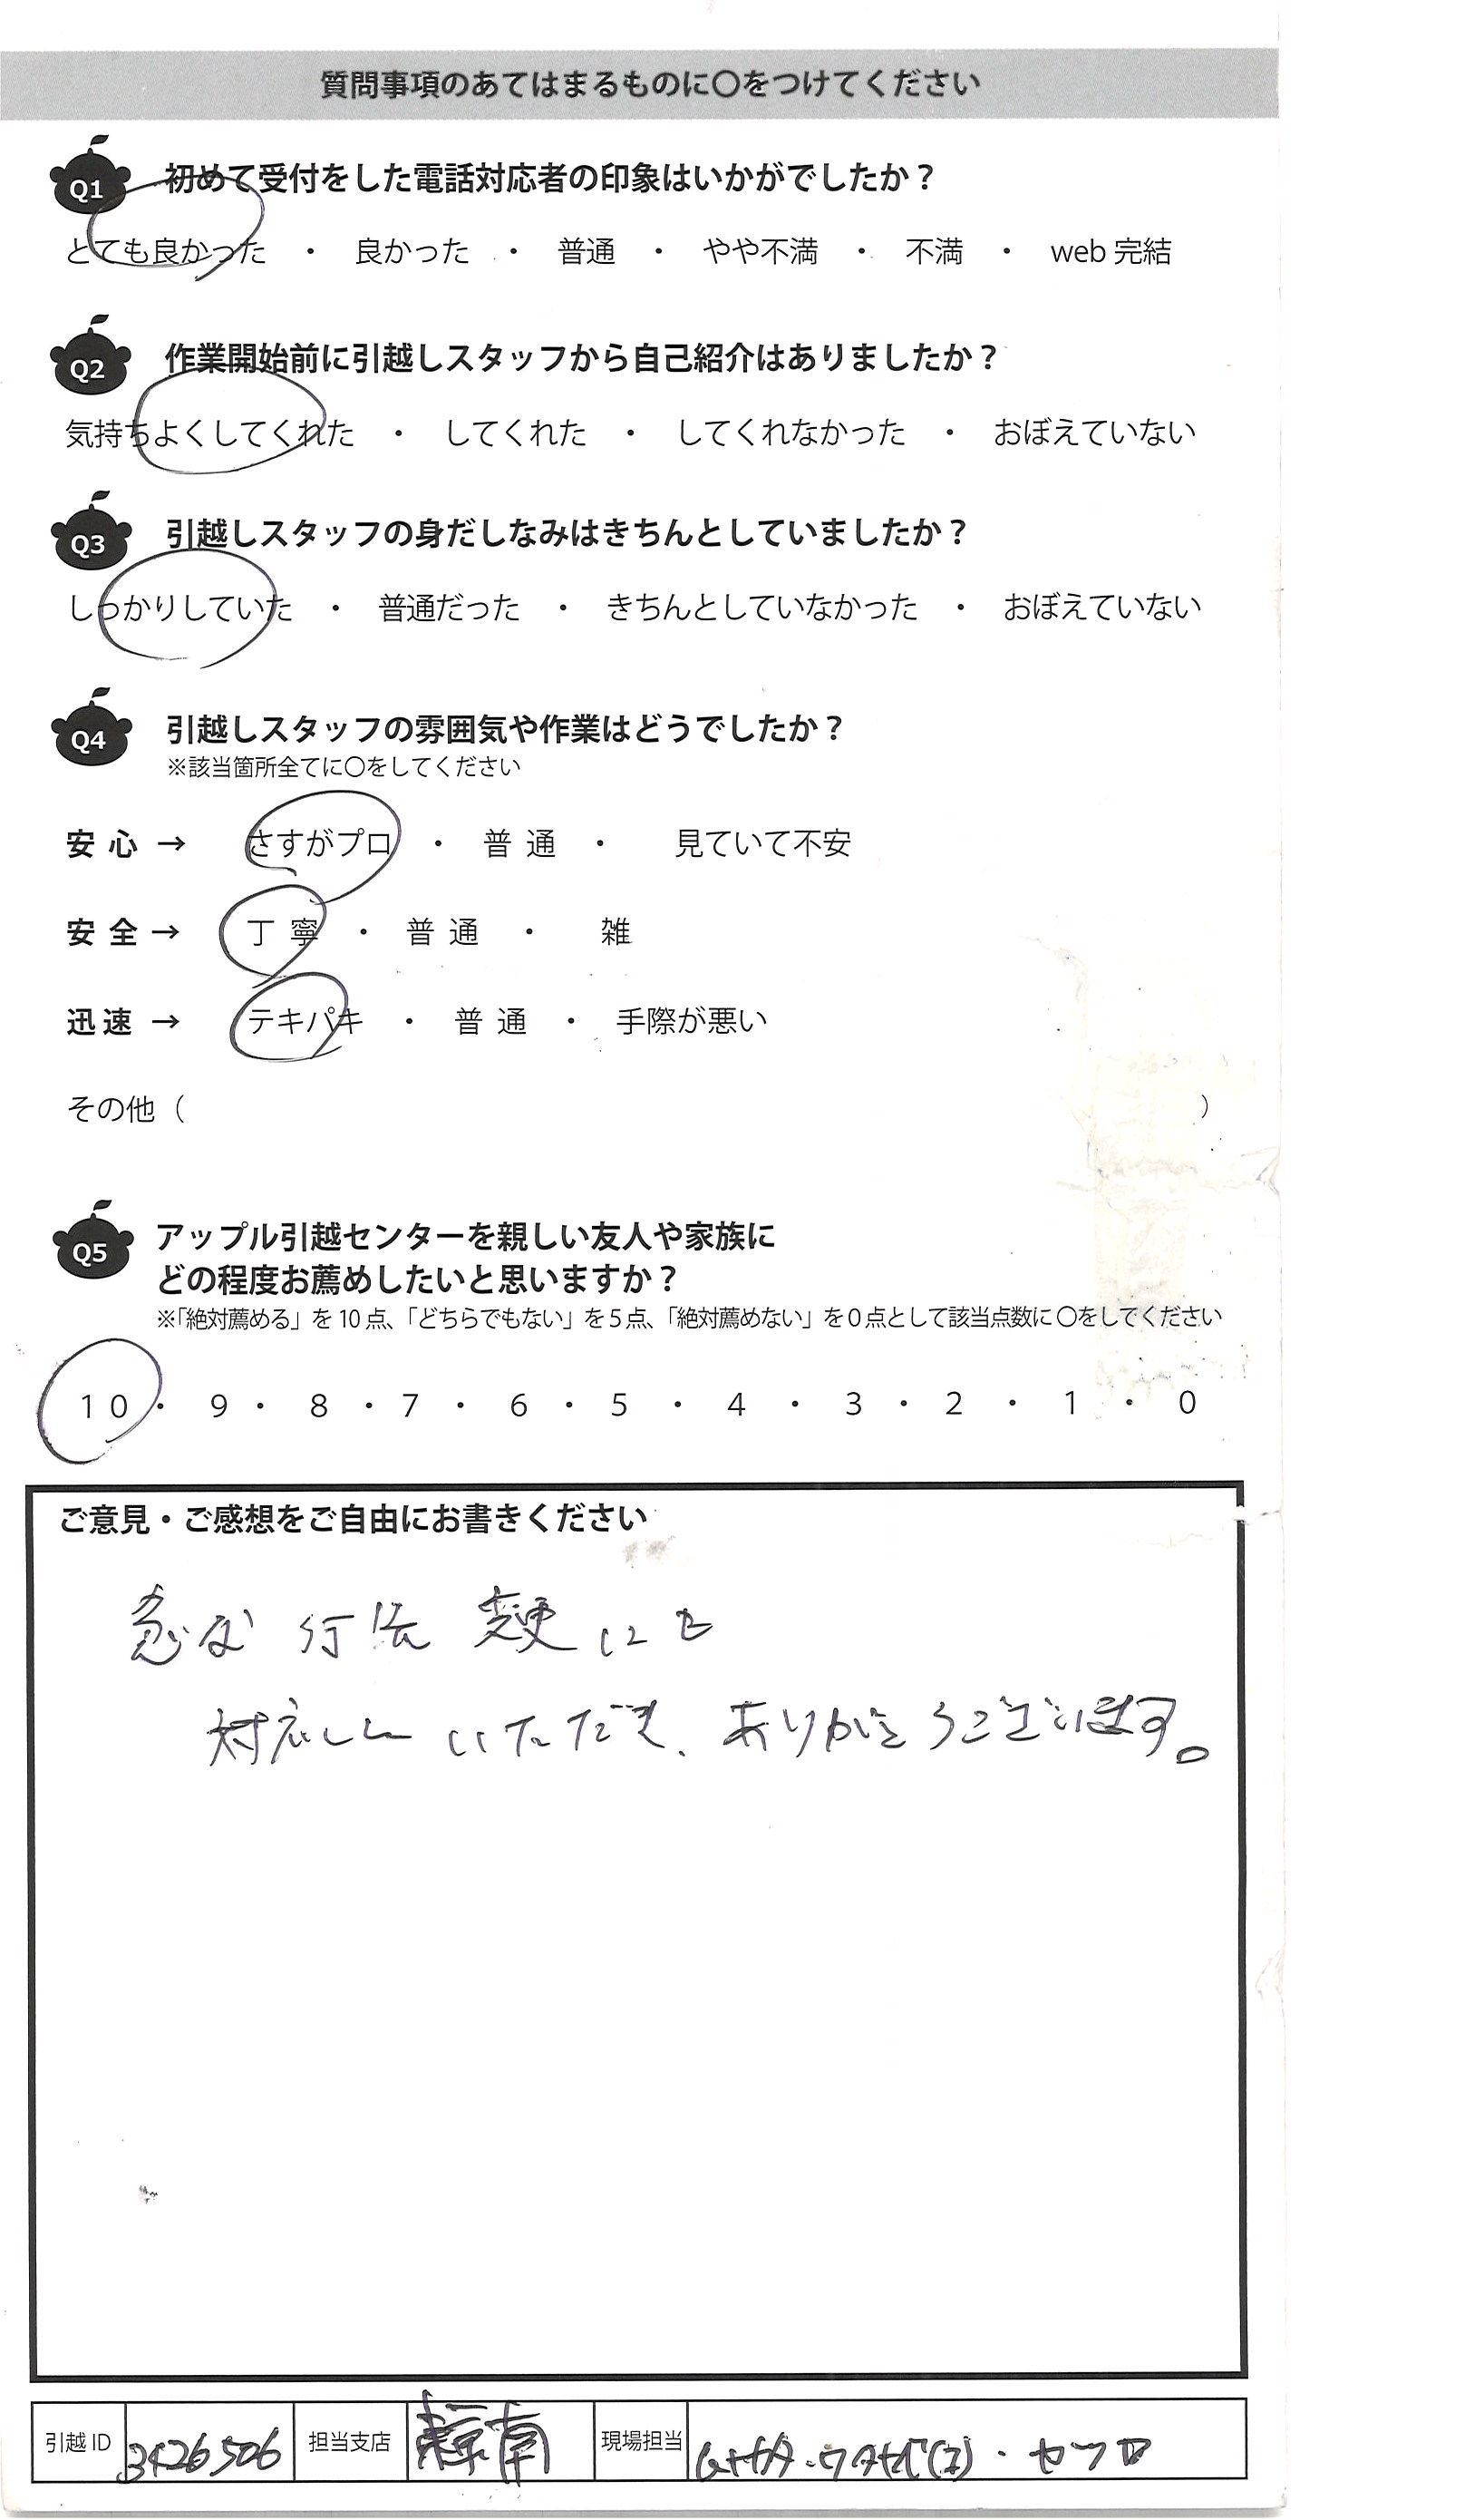 質問事項のあてはまるものに〇をつけてください
Q1 初めて受付をした電話対応者の印象はいかがでしたか？
とても良かった ・ 良かった ・ 普通 ・ やや不満 ・ 不満 ・ web 完結
Q2 作業開始前に引越しスタッフから自己紹介はありましたか？
気持ちよくしてくれた ・ してくれた ・ してくれなかった ・ おぼえていない
Q3 引越しスタッフの身だしなみはきちんとしていましたか？
しっかりしていた ・ 普通だった ・ きちんとしていなかった ・ おぼえていない
Q4 引越しスタッフの雰囲気や作業はどうでしたか？
※該当箇所全てに〇をしてください
安心 → さすがプロ ・ 普通 ・ 見ていて不安
安全 → 丁寧 ・ 普通 ・ 雑
迅速 → テキパキ ・ 普通 ・ 手際が悪い
その他（ ）
Q5 アップル引越センターを親しい友人や家族に
どの程度お薦めしたいと思いますか？
※「絶対薦める」を 10 点、「どちらでもない」を 5 点、「絶対薦めない」を 0 点として該当点数に 〇をしてください
10 ・ 9 ・ 8 ・ 7 ・ 6 ・ 5 ・ 4 ・ 3 ・ 2 ・ 1 ・ 0
ご意見・ご感想をご自由にお書きください
急な 行 変更にも
対応して いただき、ありがとうございます。
引越 ID 3426506 担当支店 東京南 現場担当